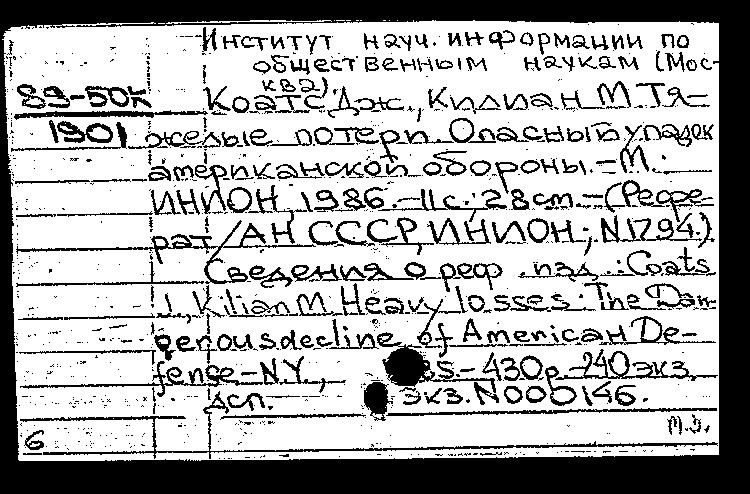 Институт науч. информации по
общественным наукам (Мос-
ква).
89-50к Коатс Дж., Килиан М. Тя-
1901 желые потери. Опасный упадок
американской обороны. - М.:
ИНИОН, 1986. - 11 с.; 28 см. - (Рефе-
рат / АН СССР, ИНИОН; N 1794.)
Сведения о реф. изд.: Coats
J., Kilian M. Heavy losses: The Dan-
gerous decline of American De-
fense - N.Y., - 430 p. - 240 экз.
дсп. Экз. N 000146.
М.Э.
6